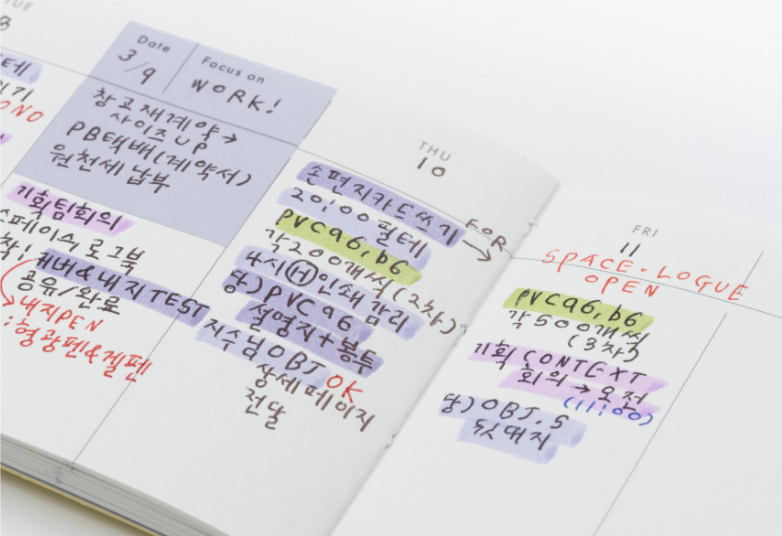 TUE
8
Date
3/9
Focus on
WORK!
창고재계약→
사이즈UP
PB택배(계약서)
원천세 납부
기획팀회의
스페이스로그북
커버&내지TEST
공유/완료
내지PEN
:형광펜&젤펜
THU
10
손편지카드쓰기
20:00 필터
FOR
PVCa6,b6
각200개씩(2차)
4시 H 인쇄 감리
당)PVCa6
설명지+봉투
지수님OBJ OK
상세페이지
전달
FRI
11
SPACE·LOGUE
OPEN
PVCa6,b6
각500개씩
(3차)
기획 CONTEXT
회의→오전
(11:00)
당)OBJ.S
뒷대지